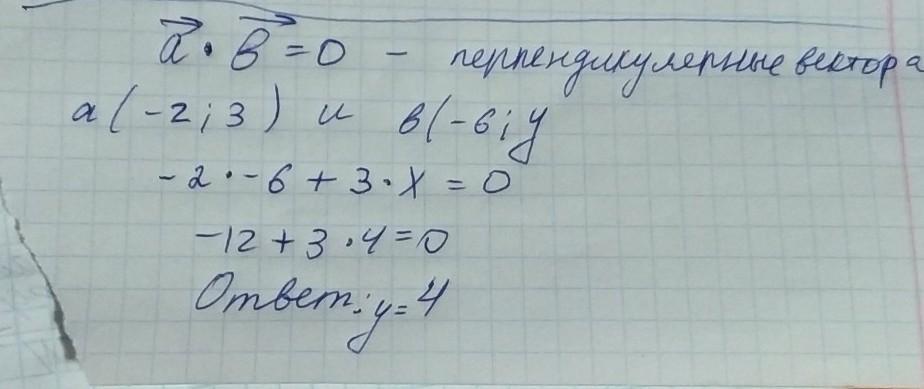 a⃗ · в⃗ = 0 – перпендикулярные вектора
а(-2;3) и в(-6;у
-2·-6+3·х=0
-12+3·4=0
Ответ: у=4